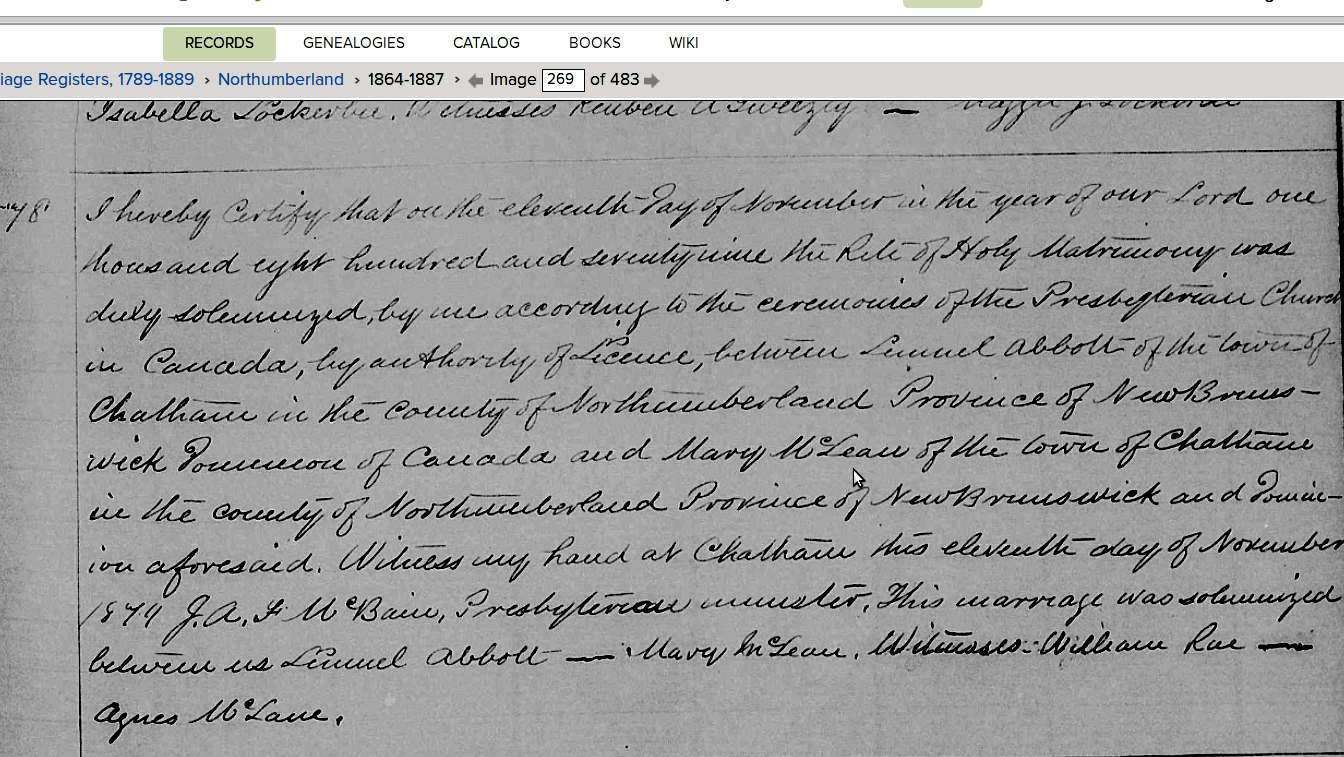 RECORDS GENEALOGIES CATALOG BOOKS WIKI
iage Registers, 1789-1889 › Northumberland › 1864-1887 › Image 269 of 483
Isabella Lockerbie. Witnesses Reuben A Sweezey —
I hereby Certify that on the eleventh Day of November in the year of our Lord one
thousand eight hundred and seventynine the Rite of Holy Matrimony was
duly solemnized, by me according to the ceremonies of the Presbyterian Church
in Canada, by authority of Licence, between Lemuel Abbott of the town of
Chatham in the county of Northumberland Province of New Bruns-
wick Dominion of Canada and Mary McLean of the town of Chatham
in the county of Northumberland Province of New Brunswick and Domin-
ion aforesaid. Witness my hand at Chatham this eleventh day of November
1879 J. A. F. McBain, Presbyterian minister. This marriage was solemnized
between us Lemuel Abbott — Mary McLean. Witnesses - William Rae —
Agnes McLane.